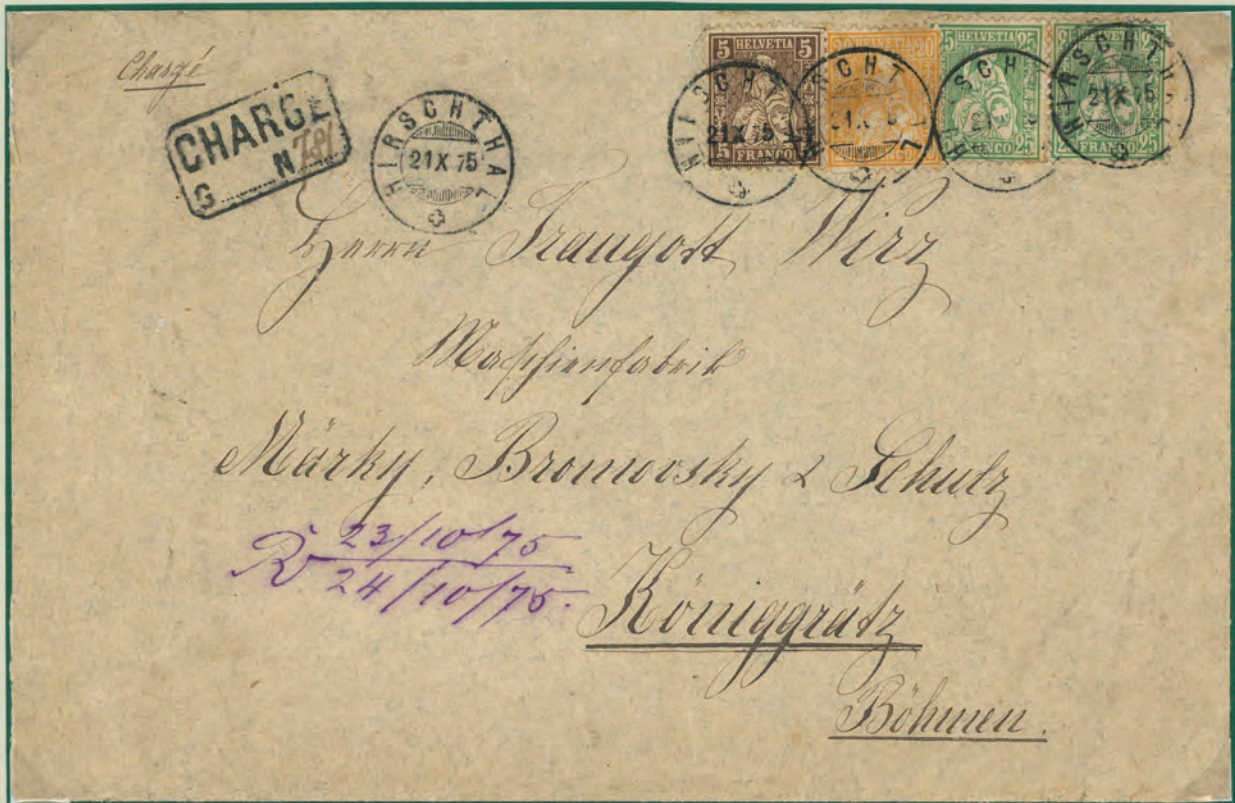 Chargé
CHARGÉ
G N 781
HIRSCHTHAL
21 X 75
5 HELVETIA 5
5 FRANCO 5
HIRSCHTHAL
21 X 75
20 HELVETIA 20
FRANCO
HIRSCHTHAL
25 HELVETIA 25
25 FRANCO 25
25 FRANCO 25
HIRSCHTHAL
21 X 75
Herrn Traugott Wirz
Maschienfabrik
Märky, Bromovsky & Schulz
R 23/10/75
24/10/75.
Königgrätz
Böhmen.